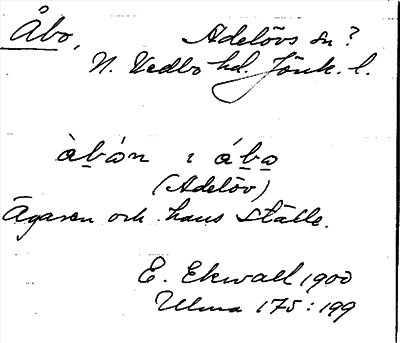 Åbo, Adelövs sn?
N. Vedbo hd. Jönk. l.
àbån i ábo
(Adelöv)
Ägaren och hans ställe.
E. Ekwall 1900
Ulma 175:199